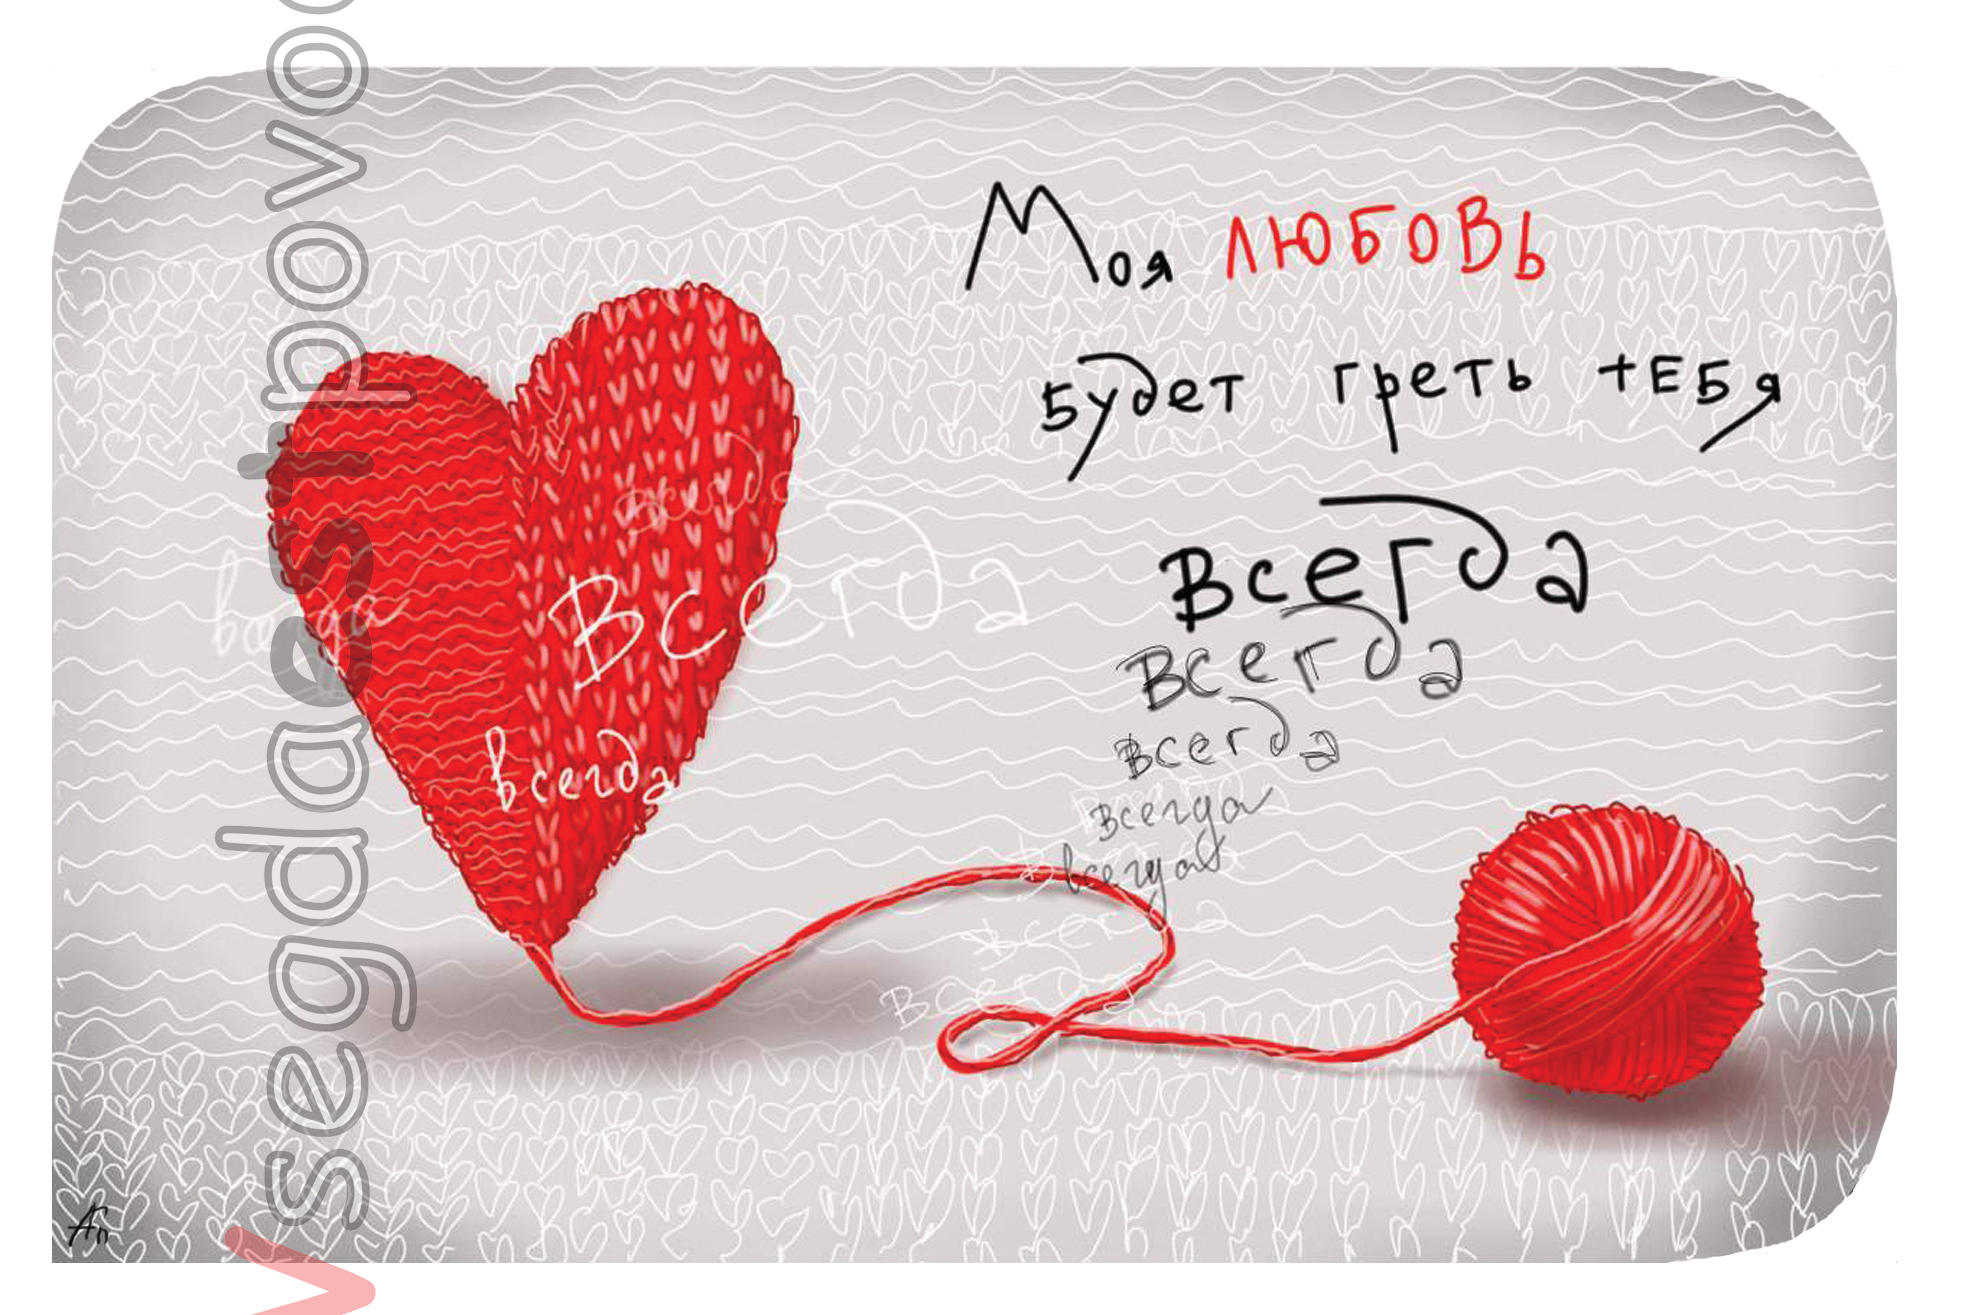 Моя ЛЮБОВЬ
будет греть тЕБЯ
всегда
всегда
всегда
всегда
всегда
всегда
Всегда
всегда
Всегда
всегда
всегда
Vsegdaestpovo
Ап